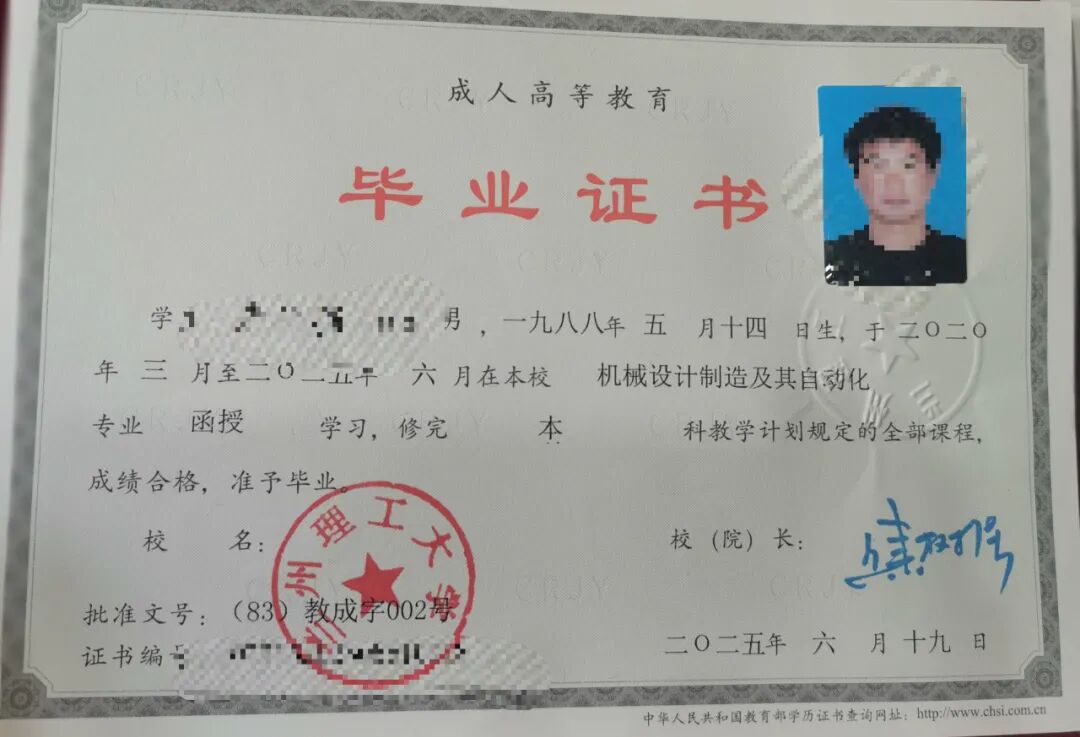 成人高等教育
毕业证书
学 男，一九八八年 五 月十四 日生，于 二〇二〇
年 三 月至二〇二五年 六 月在本校 机械设计制造及其自动化
专业 函授 ，学习，修完 本 科教学计划规定的全部课程，
成绩合格，准予毕业。
校 名： 校（院）长：
州理工大学
批准文号：（83）教成字002号
证书编号 二〇二五年 六 月 十九 日
中华人民共和国教育部学历证书查询网址：http://www.chsi.com.cn
CRJY
CRJY
CRJY
CRJY
CRJY
CRJY